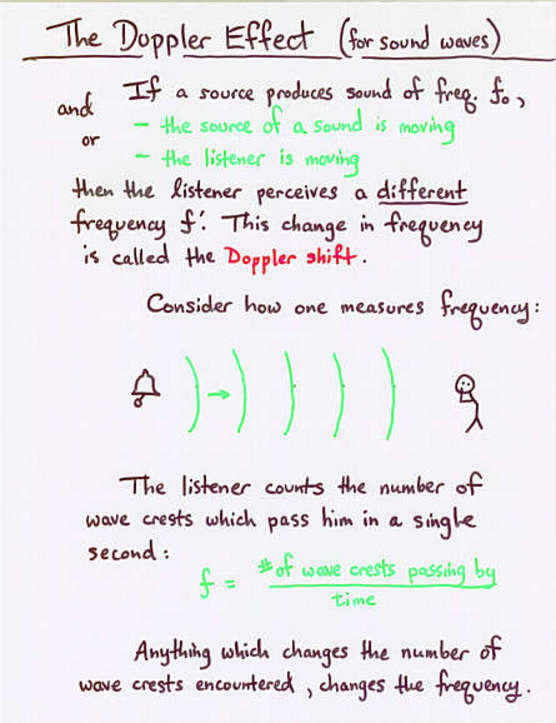 The Doppler Effect (for sound waves)
If a source produces sound of freq. f₀,
and - the source of a sound is moving
or - the listener is moving
then the listener perceives a different
frequency f'. This change in frequency
is called the Doppler shift.
Consider how one measures frequency:
The listener counts the number of
wave crests which pass him in a single
second:
f = # of wave crests passing by
time
Anything which changes the number of
wave crests encountered, changes the frequency.